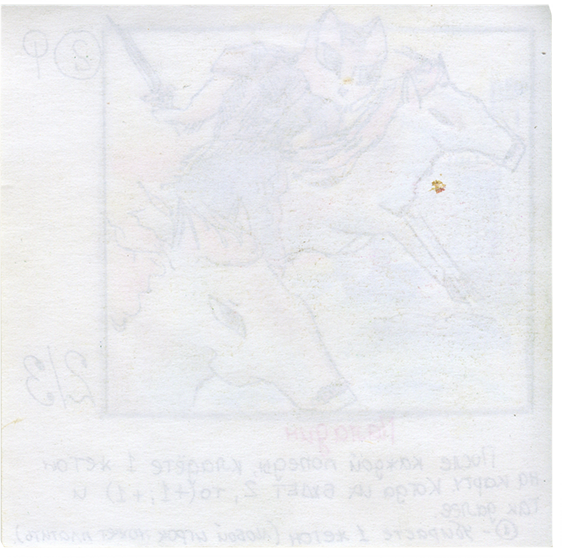 2/3
Паладин
После каждой победы кладёте 1 жетон
на карту. Когда их будет 2, то (+1,+1) и
так далее.
убираете 1 жетон (любой игрок может платить).